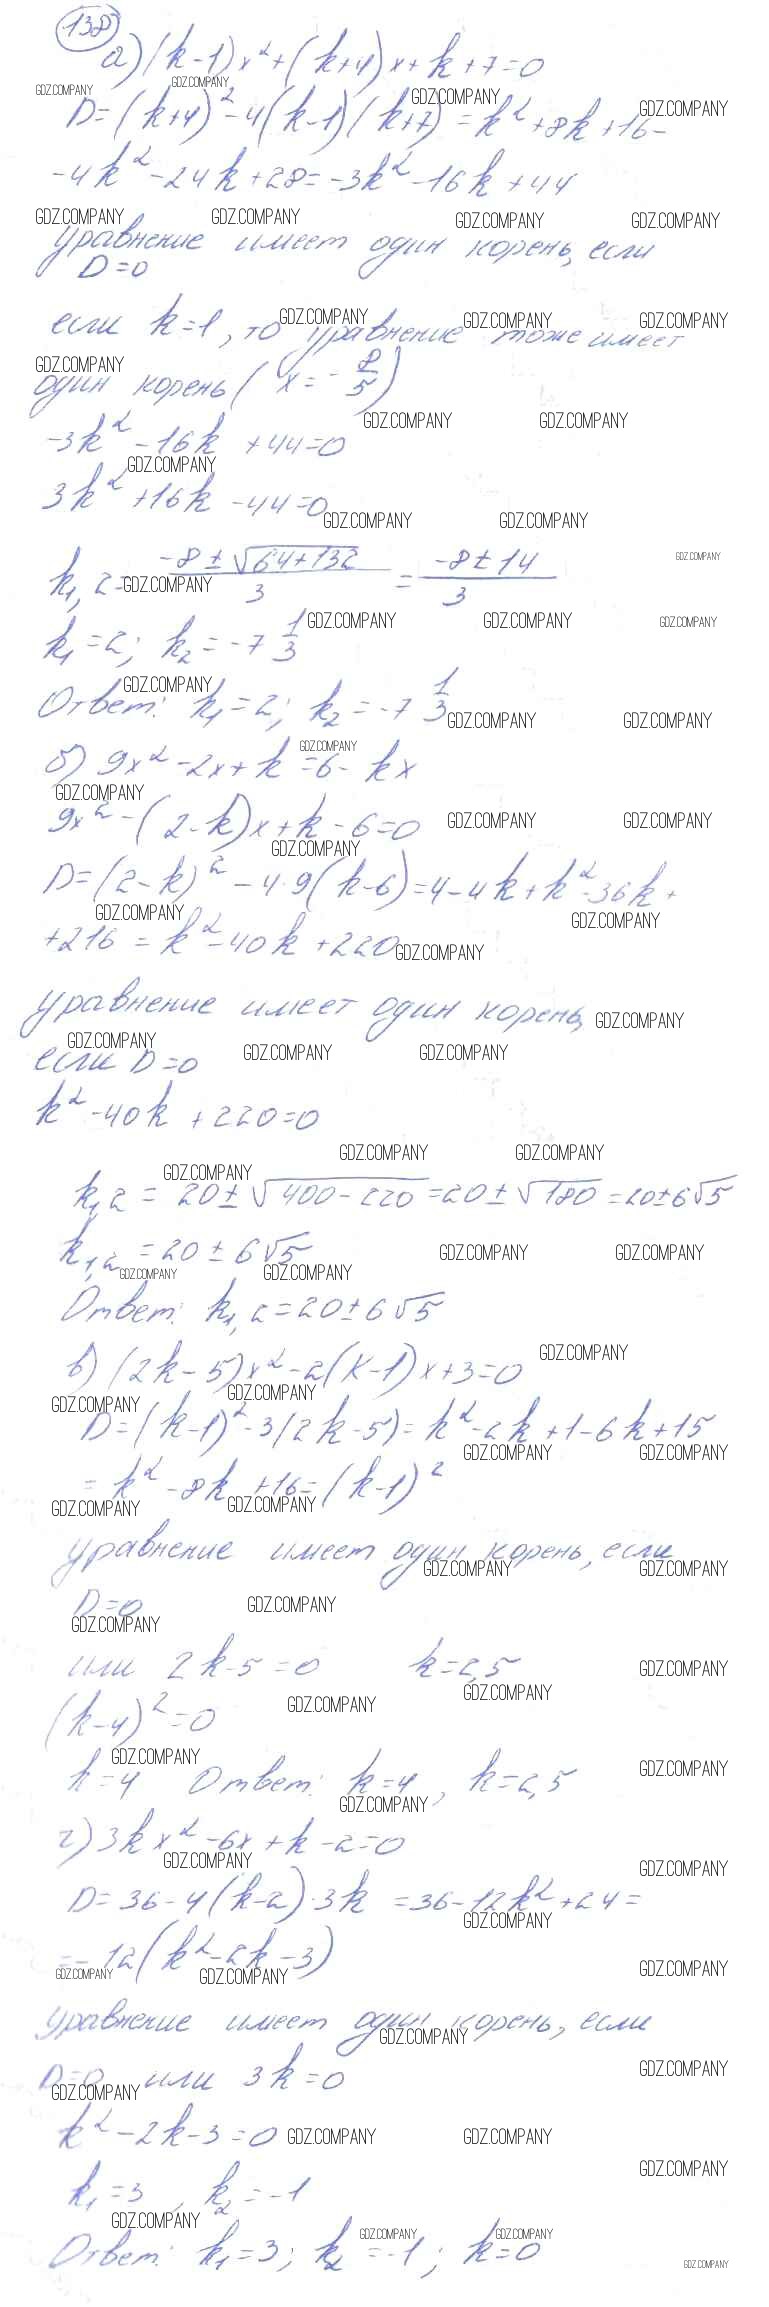 138
а) (k-1)x²+(k+4)x+k+7=0
D=(k+4)²-4(k-1)(k+7)=k²+8k+16-
-4k²-24k+28=-3k²-16k+44
уравнение имеет один корень, если
D=0
если k=1, то уравнение тоже имеет
один корень (x=-8/5)
-3k²-16k+44=0
3k²+16k-44=0
k₁,₂=(-8±√(64+132))/3=(-8±14)/3
k₁=2; k₂=-7 1/3
Ответ: k₁=2; k₂=-7 1/3
б) 9x²-2x+k=6-kx
9x²-(2-k)x+k-6=0
D=(2-k)²-4·9(k-6)=4-4k+k²-36k+
+216=k²-40k+220
уравнение имеет один корень,
если D=0
k²-40k+220=0
k₁,₂=20±√(400-220)=20±√180=20±6√5
k₁,₂=20±6√5
Ответ: k₁,₂=20±6√5
в) (2k-5)x²-2(k-1)x+3=0
D=(k-1)²-3(2k-5)=k²-2k+1-6k+15
=k²-8k+16=(k-1)²
уравнение имеет один корень, если
D=0
или 2k-5=0 k=2,5
(k-4)²=0
k=4 Ответ: k=4, k=2,5
г) 3kx²-6x+k-2=0
D=36-4(k-2)·3k=36-12k²+24=
=-12(k²-2k-3)
уравнение имеет один корень, если
D=0 или 3k=0
k²-2k-3=0
k₁=3, k₂=-1
Ответ: k₁=3; k₂=-1; k=0
GDZ.COMPANY